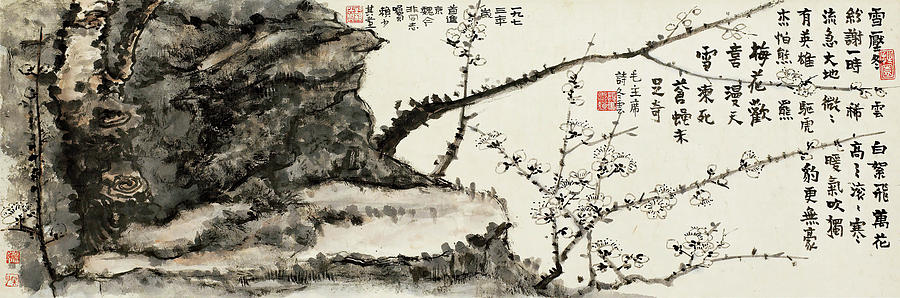 雪壓冬雲白絮飛萬花
紛謝一時稀高天滾滾寒
流急大地微微暖氣吹獨
有英雄驅虎豹更無豪
杰怕熊羆
梅花歡
喜漫天
雪凍死
蒼蠅未
足奇
毛主席
詩冬雲
一九七
三年
歲
首進
京
魏今
非同志
囑
賴少
其並